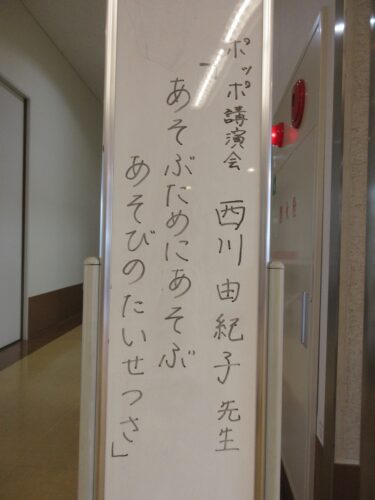 ポッポ講演会 西川由紀子先生
「あそぶためにあそぶ
あそびのたいせつさ」